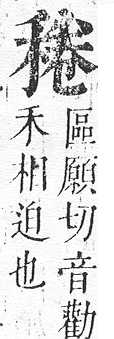 䅚
區願切音勸
禾相迫也